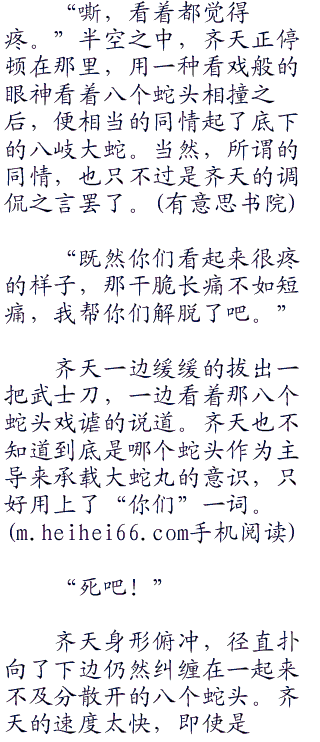 “嘶，看着都觉得
疼。”半空之中，齐天正停
顿在那里，用一种看戏般的
眼神看着八个蛇头相撞之
后，便相当的同情起了底下
的八岐大蛇。当然，所谓的
同情，也只不过是齐天的调
侃之言罢了。(有意思书院)
“既然你们看起来很疼
的样子，那干脆长痛不如短
痛，我帮你们解脱了吧。”
齐天一边缓缓的拔出一
把武士刀，一边看着那八个
蛇头戏谑的说道。齐天也不
知道到底是哪个蛇头作为主
导来承载大蛇丸的意识，只
好用上了“你们”一词。
(m.heihei66.com手机阅读)
“死吧！”
齐天身形俯冲，径直扑
向了下边仍然纠缠在一起来
不及分散开的八个蛇头。齐
天的速度太快，即使是